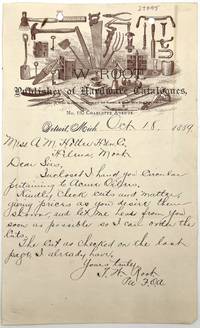 27005
W. ROOT,
Publisher of Hardware Catalogues,
CHARLOTTE AVENUE.
Detroit, Mich. Oct 18, 1889.
Mess A. M. Holter Hdw Co
Helena, Mont
Dear Sirs,
Inclosed I hand you Circular
pertaining to Oilers.
Kindly check cuts and matter,
giving prices as you desire them
shown, and let me hear from you
soon as possible so I can order the
cuts.
The cut as checked on the last
page I already have.
Yours truly,
Root